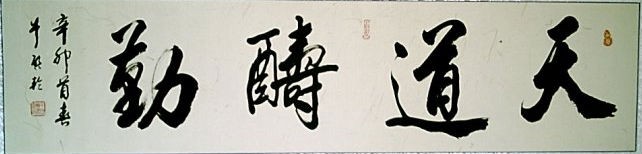 天道酬勤
辛卯首春